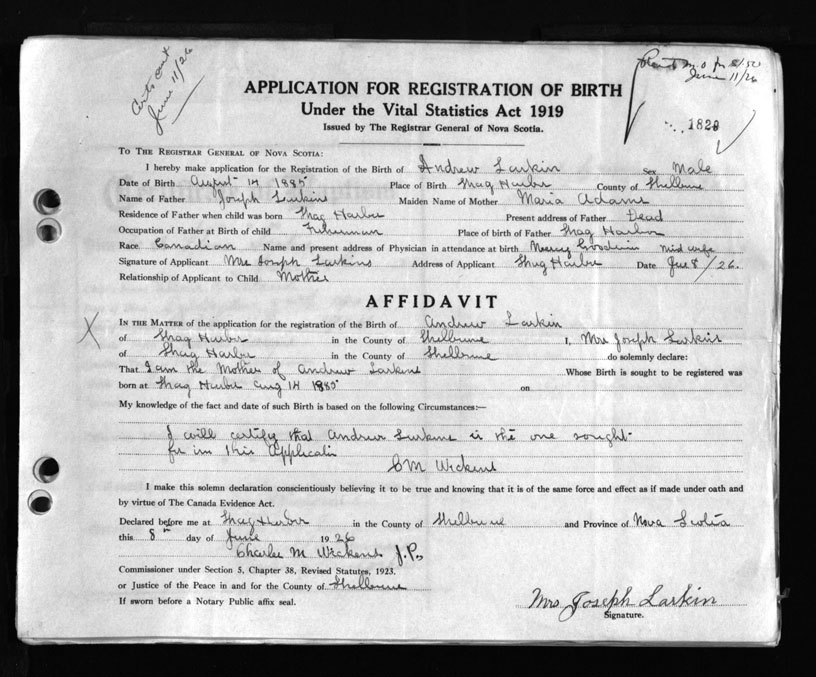 Certs sent
June 11/26
June 11/26
1829
APPLICATION FOR REGISTRATION OF BIRTH
Under the Vital Statistics Act 1919
Issued by The Registrar General of Nova Scotia.
To The Registrar General of Nova Scotia:
I hereby make application for the Registration of the Birth of Andrew Larkin Sex Male
Date of Birth August 14 1885 Place of Birth Shag Harbor County of Shelburne
Name of Father Joseph Larkins Maiden Name of Mother Maria Adams
Residence of Father when child was born Shag Harbor Present address of Father Dead
Occupation of Father at Birth of child Fisherman Place of birth of Father Shag Harbor
Race Canadian Name and present address of Physician in attendance at birth Goodwin mid wife
Signature of Applicant Mrs Joseph Larkins Address of Applicant Shag Harbor Date June 8/26.
Relationship of Applicant to Child Mother
AFFIDAVIT
In the Matter of the application for the registration of the Birth of Andrew Larkin
of Shag Harbor in the County of Shelburne I, Mrs Joseph Larkins
of Shag Harbor in the County of Shelburne do solemnly declare:
That I am the Mother of Andrew Larkins Whose Birth is sought to be registered was
born at Shag Harbor Aug 14 1885 on
My knowledge of the fact and date of such Birth is based on the following Circumstances:—
I will certify that Andrew Larkins is the one sought
for in this Application
C M Wickens
I make this solemn declaration conscientiously believing it to be true and knowing that it is of the same force and effect as if made under oath and
by virtue of The Canada Evidence Act.
Declared before me at Shag Harbor in the County of Shelburne and Province of Nova Scotia
this 8th day of June 1926
Charles M Wickens J.P.
Commissioner under Section 5, Chapter 38, Revised Statutes, 1923.
or Justice of the Peace in and for the County of Shelburne
If sworn before a Notary Public affix seal.
Mrs Joseph Larkin
Signature.